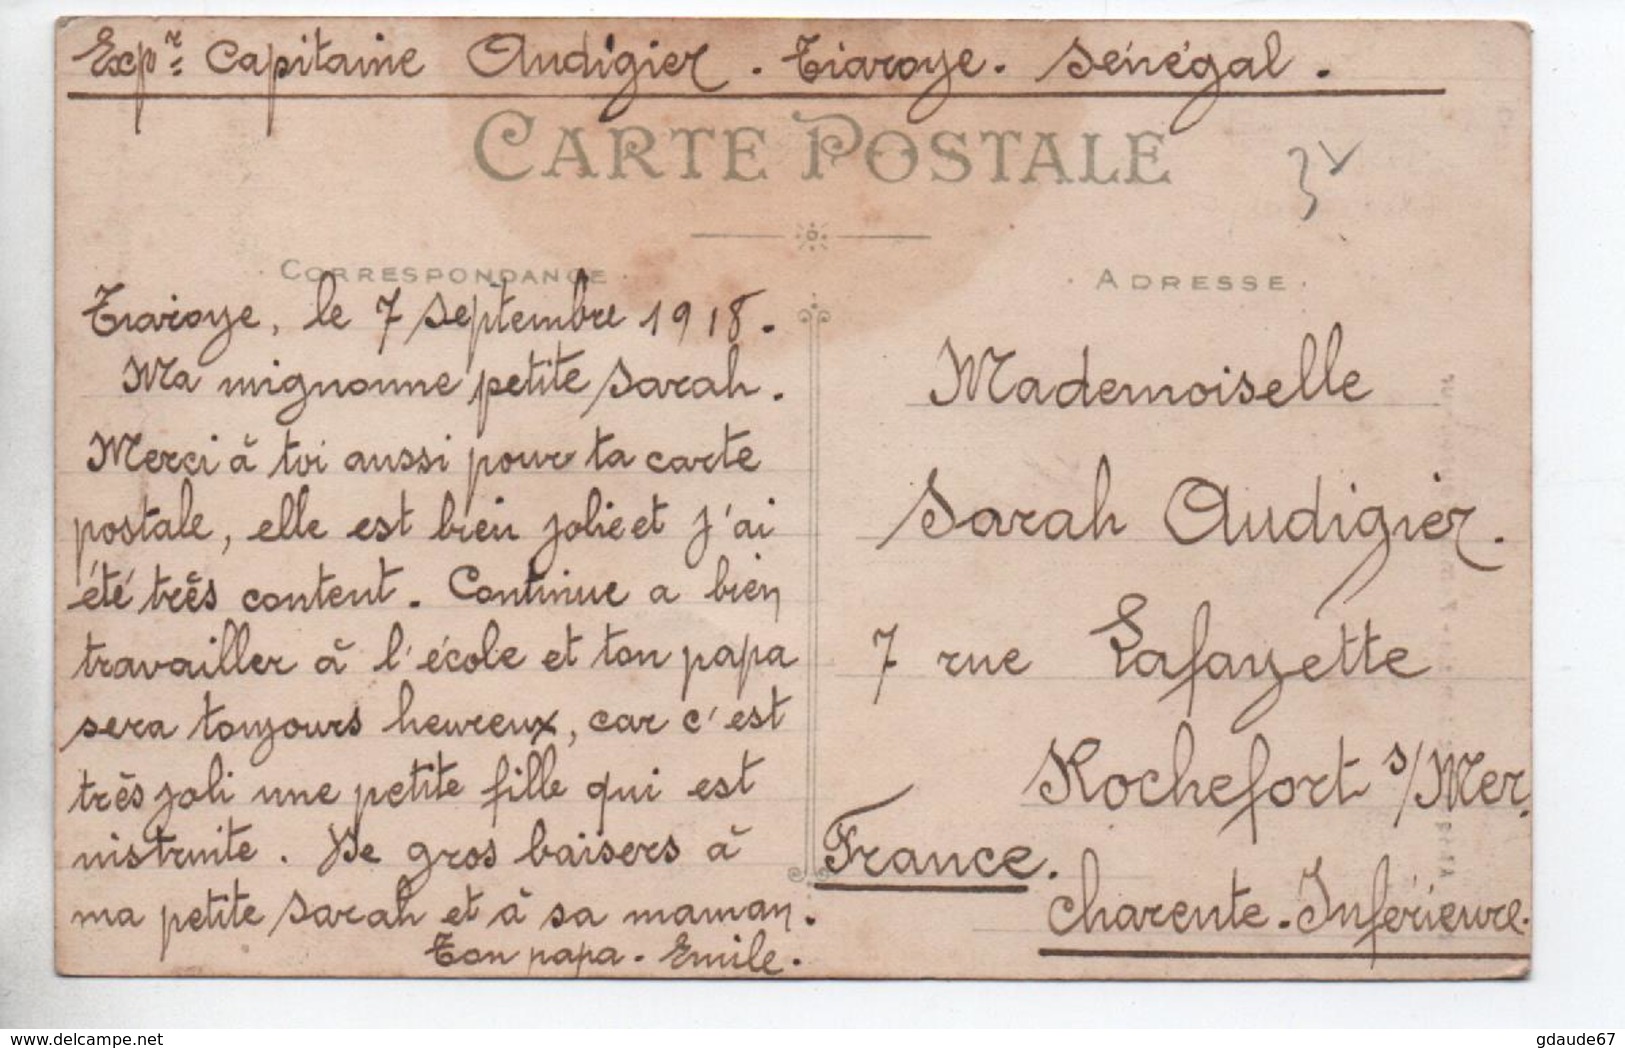 Expr. Capitaine Audigier. Tiaroye. Sénégal.
CARTE POSTALE
CORRESPONDANCE
ADRESSE
Tiaroye, le 7 septembre 1918.
Ma mignonne petite Sarah.
Merci à toi aussi pour ta carte
postale, elle est bien jolie et j'ai
été très content. Continue a bien
travailler à l'école et ton papa
sera toujours heureux, car c'est
très joli une petite fille qui est
instruite. De gros baisers à
ma petite Sarah et à sa maman.
Ton papa. Emile.
Mademoiselle
Sarah Audigier.
7 rue Lafayette
Rochefort s/Mer.
France.
Charente-Inférieure.
gdaude67